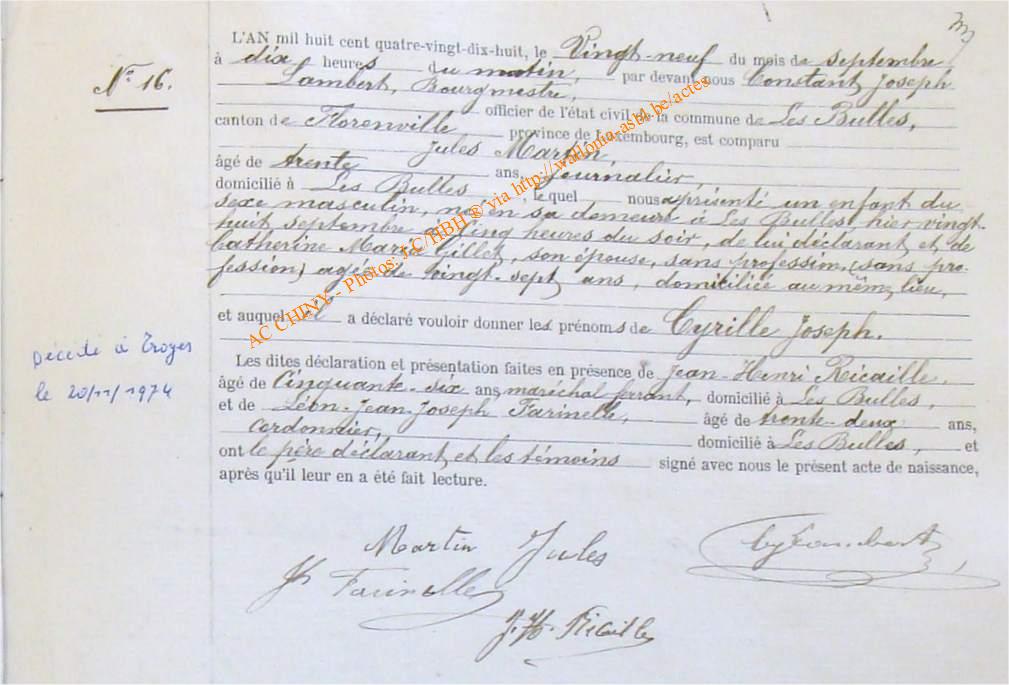 N° 16.
L'AN mil huit cent quatre-vingt-dix-huit, le Vingt-neuf du mois de septembre
à dix heures du matin, par devant nous Constant Joseph
Lambert, Bourgmestre,
officier de l'état civil de la commune de Les Bulles,
canton de Florenville province de Luxembourg, est comparu
Jules Martin,
âgé de trente ans, Journalier,
domicilié à Les Bulles, lequel nous a présenté un enfant du
sexe masculin, né en sa demeure à Les Bulles, hier vingt-
huit septembre à cinq heures du soir, de lui déclarant et de
Catherine Marie Gillet, son épouse, sans profession, (sans pro-
fession) agée de vingt-sept ans, domiciliée au même lieu,
et auquel il a déclaré vouloir donner les prénoms de Cyrille Joseph.
Les dites déclaration et présentation faites en présence de Jean-Henri Ricaille,
âgé de Cinquante-six ans, maréchal ferrant, domicilié à Les Bulles,
et de Léon-Jean-Joseph Farinelle, âgé de trente-deux ans,
cordonnier, domicilié à Les Bulles, et
ont le père déclarant et les témoins signé avec nous le présent acte de naissance,
après qu'il leur en a été fait lecture.
Décédé à Troyes
le 20/11/1974
Martin Jules
Farinelle
J. H. Ricaille
AC CHINY - Photos: J.C/HBH ® via http://wallonia-asbl.be/actes